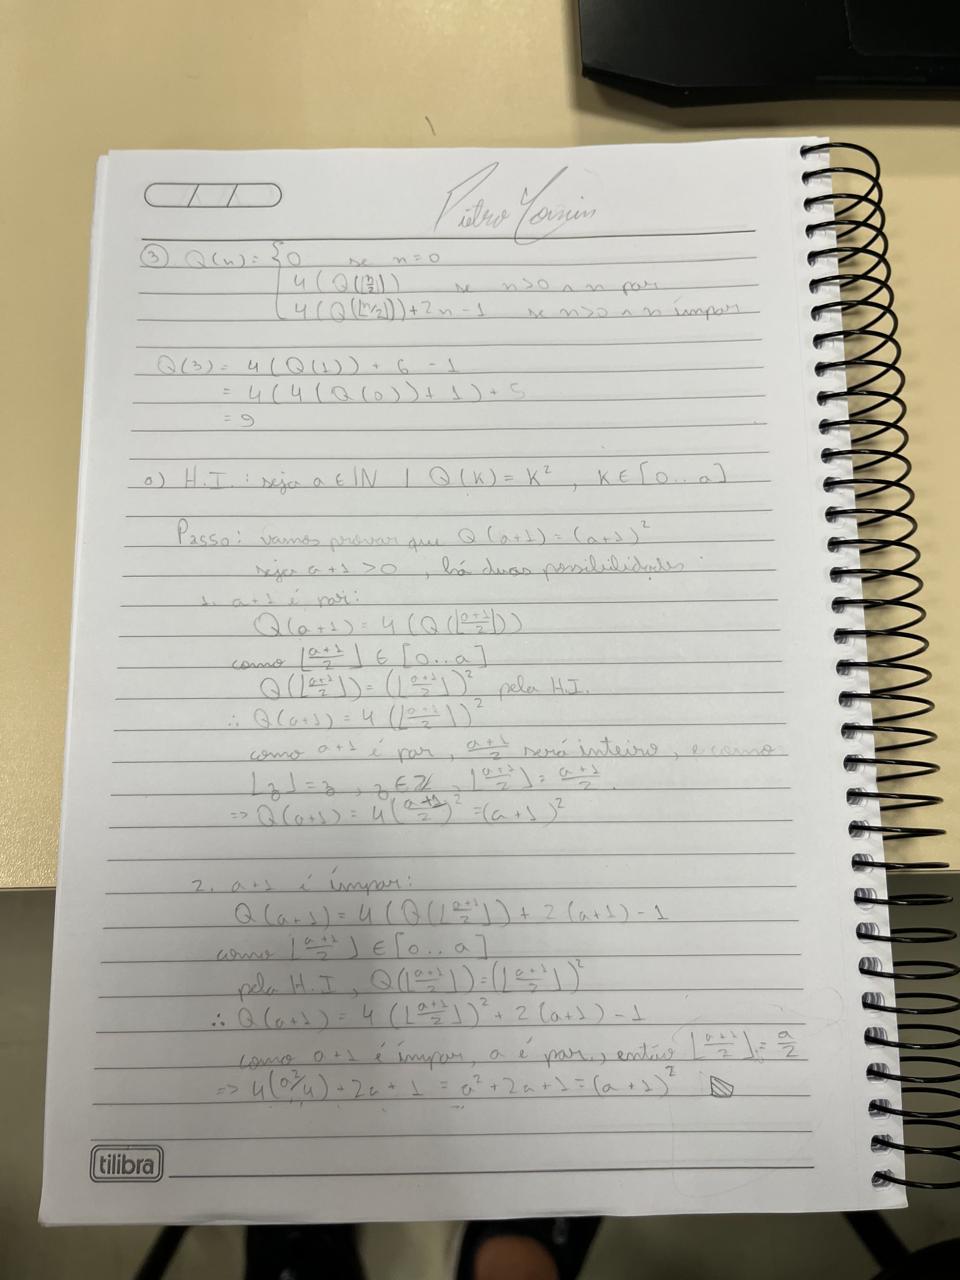 Pietro
③ Q(n) = { 0 se n=0
4(Q(⌊n/2⌋)) se n>0 ∧ n par
4(Q(⌊n/2⌋)) + 2n - 1 se n>0 ∧ n ímpar
Q(3) = 4(Q(1)) + 6 - 1
= 4(4(Q(0)) + 1) + 5
= 9
a) H.I.: seja a ∈ ℕ | Q(k) = k², k ∈ [0..a]
Passo: vamos provar que Q(a+1) = (a+1)²
seja a+1 > 0, há duas possibilidades
1. a+1 é par:
Q(a+1) = 4(Q(⌊(a+1)/2⌋))
como ⌊(a+1)/2⌋ ∈ [0..a]
Q(⌊(a+1)/2⌋) = (⌊(a+1)/2⌋)² pela H.I.
∴ Q(a+1) = 4(⌊(a+1)/2⌋)²
como a+1 é par, (a+1)/2 será inteiro, e como
⌊z⌋ = z, z ∈ ℤ, ⌊(a+1)/2⌋ = (a+1)/2.
=> Q(a+1) = 4((a+1)/2)² = (a+1)²
2. a+1 é ímpar:
Q(a+1) = 4(Q(⌊(a+1)/2⌋) + 2(a+1) - 1
como ⌊(a+1)/2⌋ ∈ [0..a]
pela H.I, Q(⌊(a+1)/2⌋) = (⌊(a+1)/2⌋)²
∴ Q(a+1) = 4(⌊(a+1)/2⌋)² + 2(a+1) - 1
como a+1 é ímpar, a é par, então ⌊(a+1)/2⌋ = a/2
=> 4(a²/4) + 2a + 1 = a² + 2a + 1 = (a+1)²
tilibra